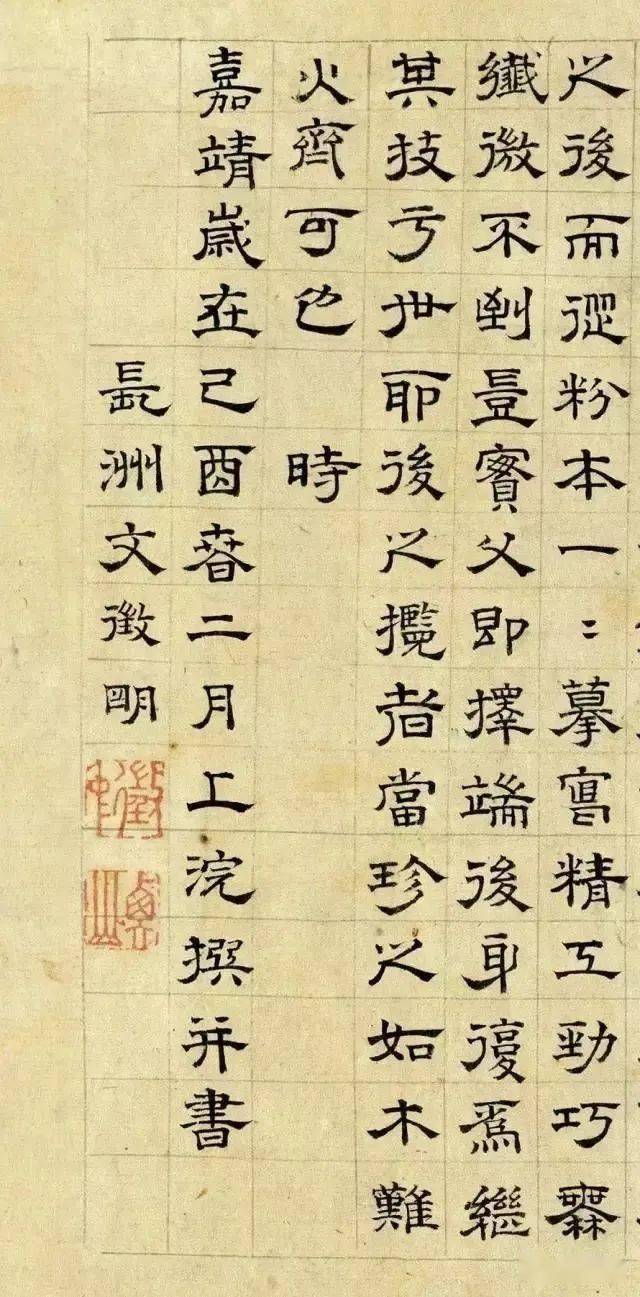 之後而從粉本一〻摹寫精工勁巧無
纖微不到豈賓父即擇端後身復爲繼
其技亏世耶後之攬者當珍之如木難
火齊可也 時
嘉靖歲在己酉春二月上浣撰并書
長洲文徵明
徵仲